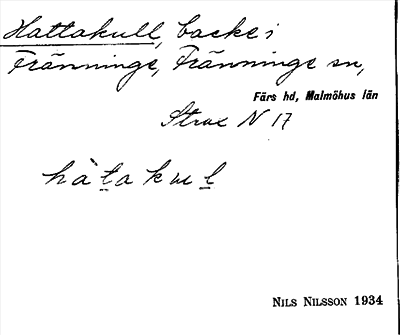 Hattakull, backe i
Tränninge, Tränninge sn,
Färs hd, Malmöhus län
Strax N 17
hàt̲akul̲
NILS NILSSON 1934